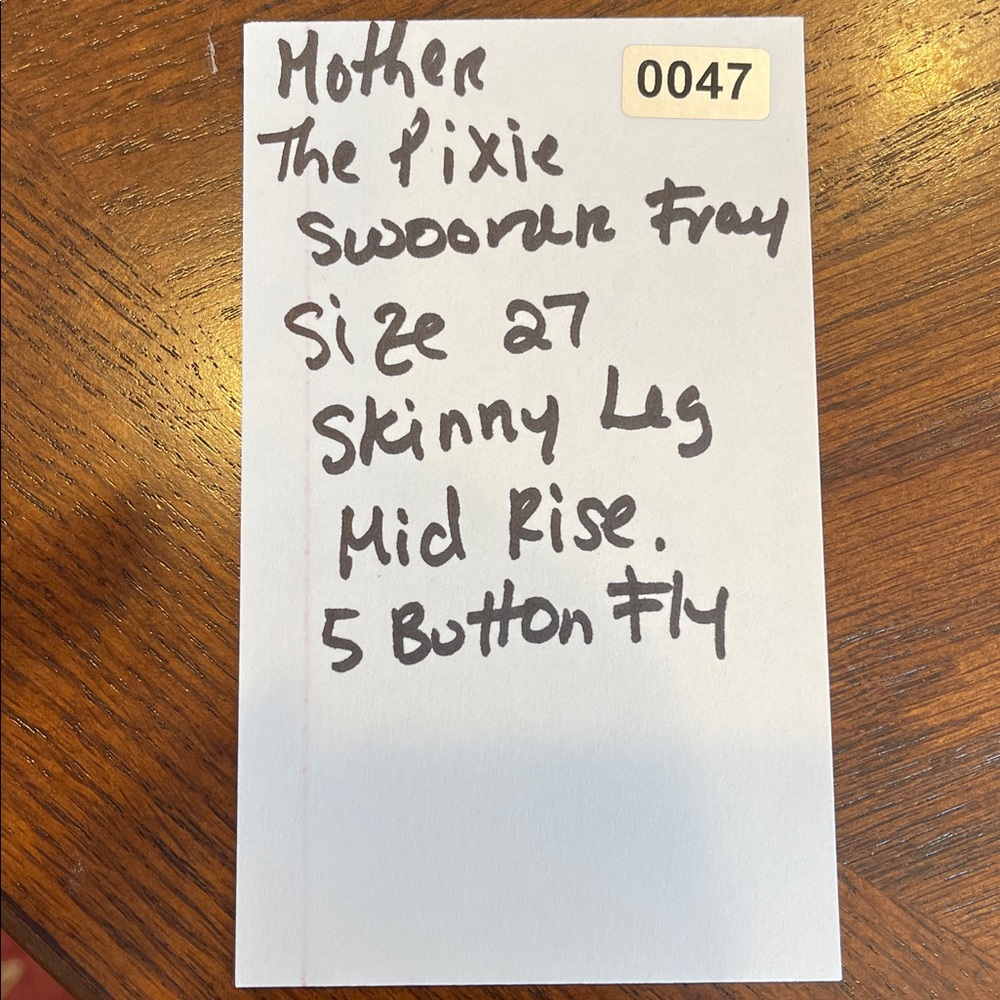 Mother
0047
The Pixie
Swooner Fray
Size 27
Skinny Leg
Mid Rise.
5 Button Fly